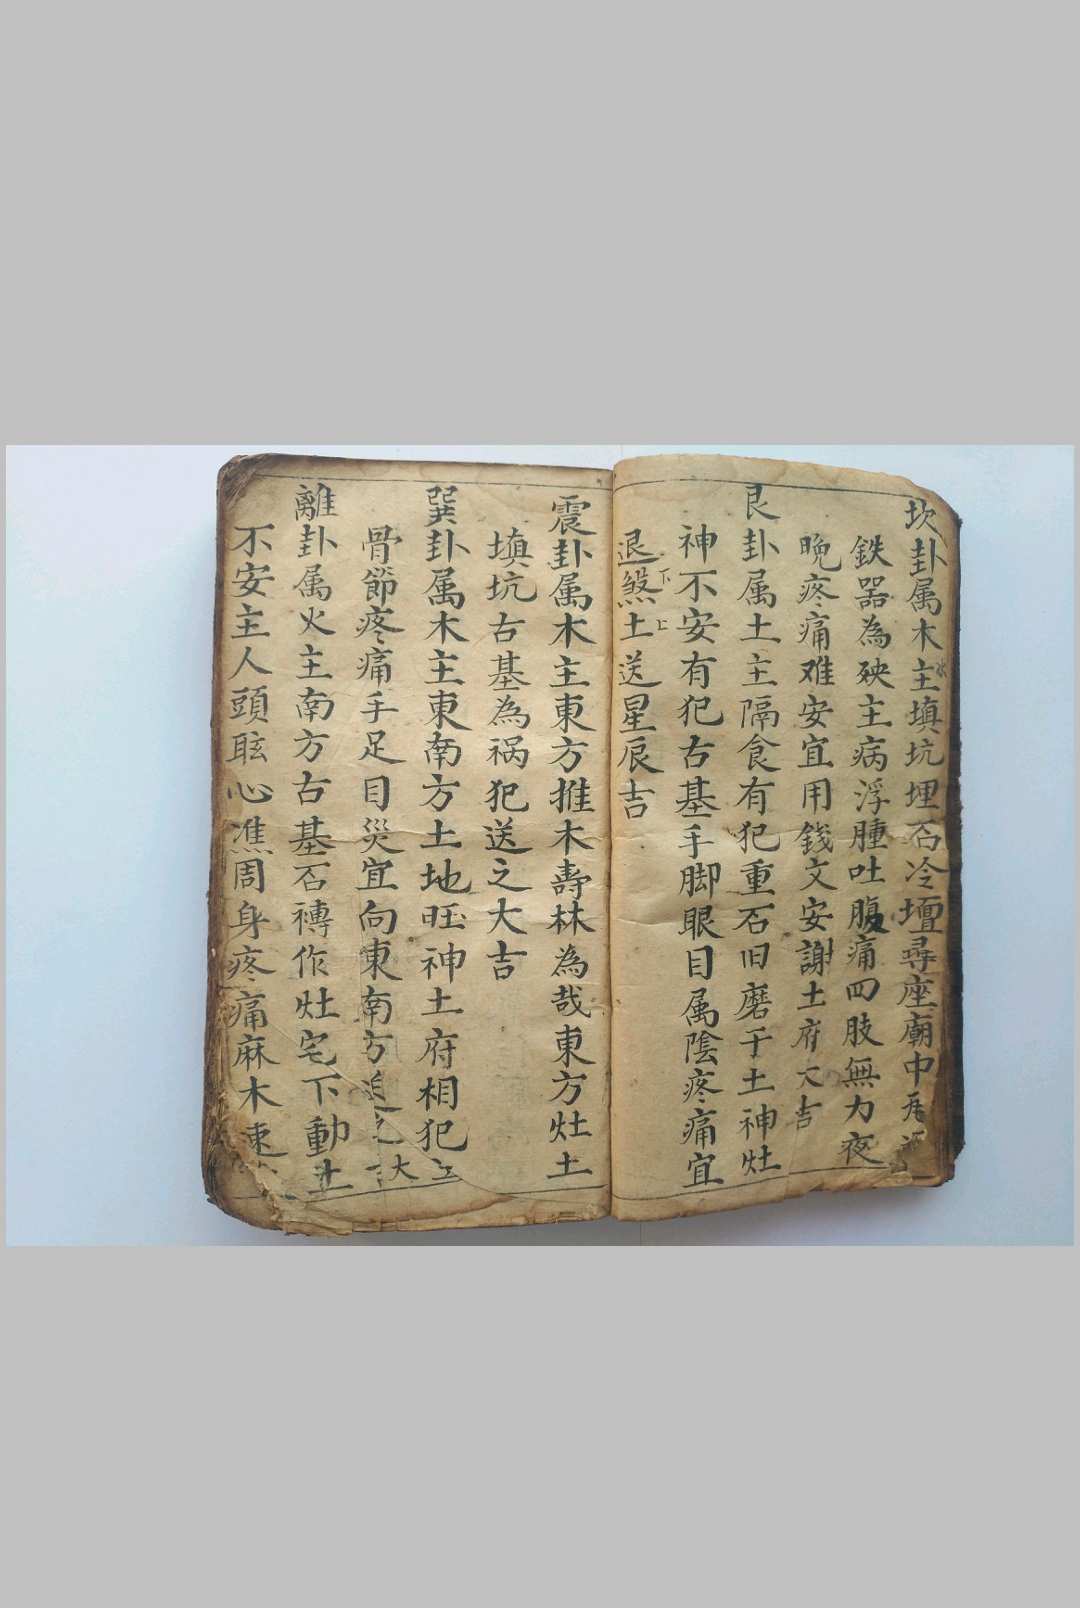 坎卦属木主填坑埋石冷壇尋座廟中
水
鉄器為殃主病浮腫吐腹痛四肢無力夜
晚疼痛难安宜用錢文安謝土府大吉
艮卦属土主隔食有犯重石旧磨于土神灶
神不安有犯古基手脚眼目属陰疼痛宜
退煞土送星辰吉
下上
震卦属木主東方推木壽林為哉東方灶土
填坑古基為祸犯送之大吉
巽卦属木主東南方土地旺神土府相犯
骨節疼痛手足目災宜向東南方 之大
離卦属火主南方古基石磚作灶宅下動土
不安主人頭眩心憔周身疼痛麻木速